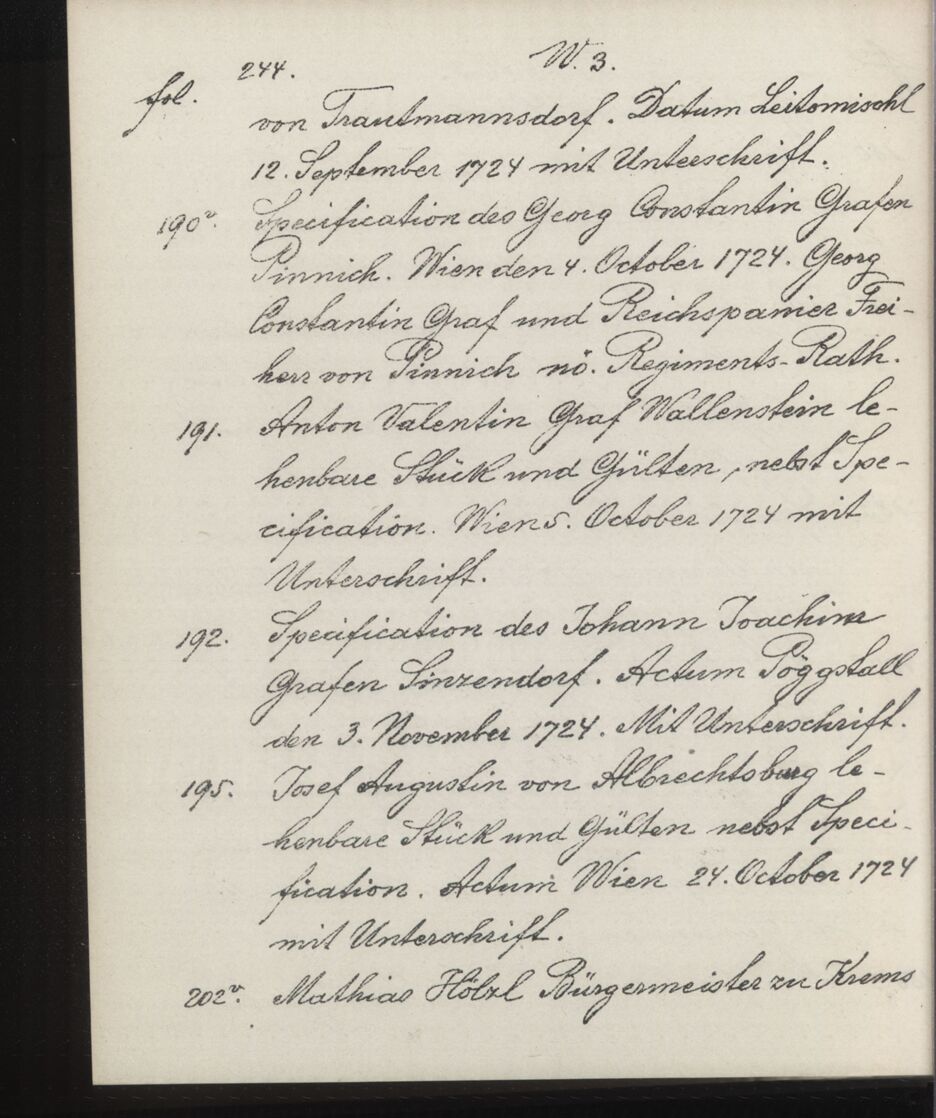 244. W. 3.
fol. von Trautmannsdorf. Datum Leitomischl
12. September 1724 mit Unterschrift.
190v. Specification des Georg Constantin Grafen
Pinnich. Wien den 4. October 1724. Georg
Constantin Graf und Reichspanier Frei-
herr von Pinnich nö. Regiments-Rath.
191. Anton Valentin Graf Wallenstein le-
henbare Stück und Gülten, nebst Spe-
cification. Wien 5. October 1724 mit
Unterschrift.
192. Specification des Johann Joachim
Grafen Sinzendorf. Actum Pöggstall
den 3. November 1724. Mit Unterschrift.
195. Josef Augustin von Albrechtsburg le-
henbare Stück und Gülten nebst Speci-
fication. Actum Wien 24. October 1724
mit Unterschrift.
202v. Mathias Hölzl Bürgermeister zu Krems